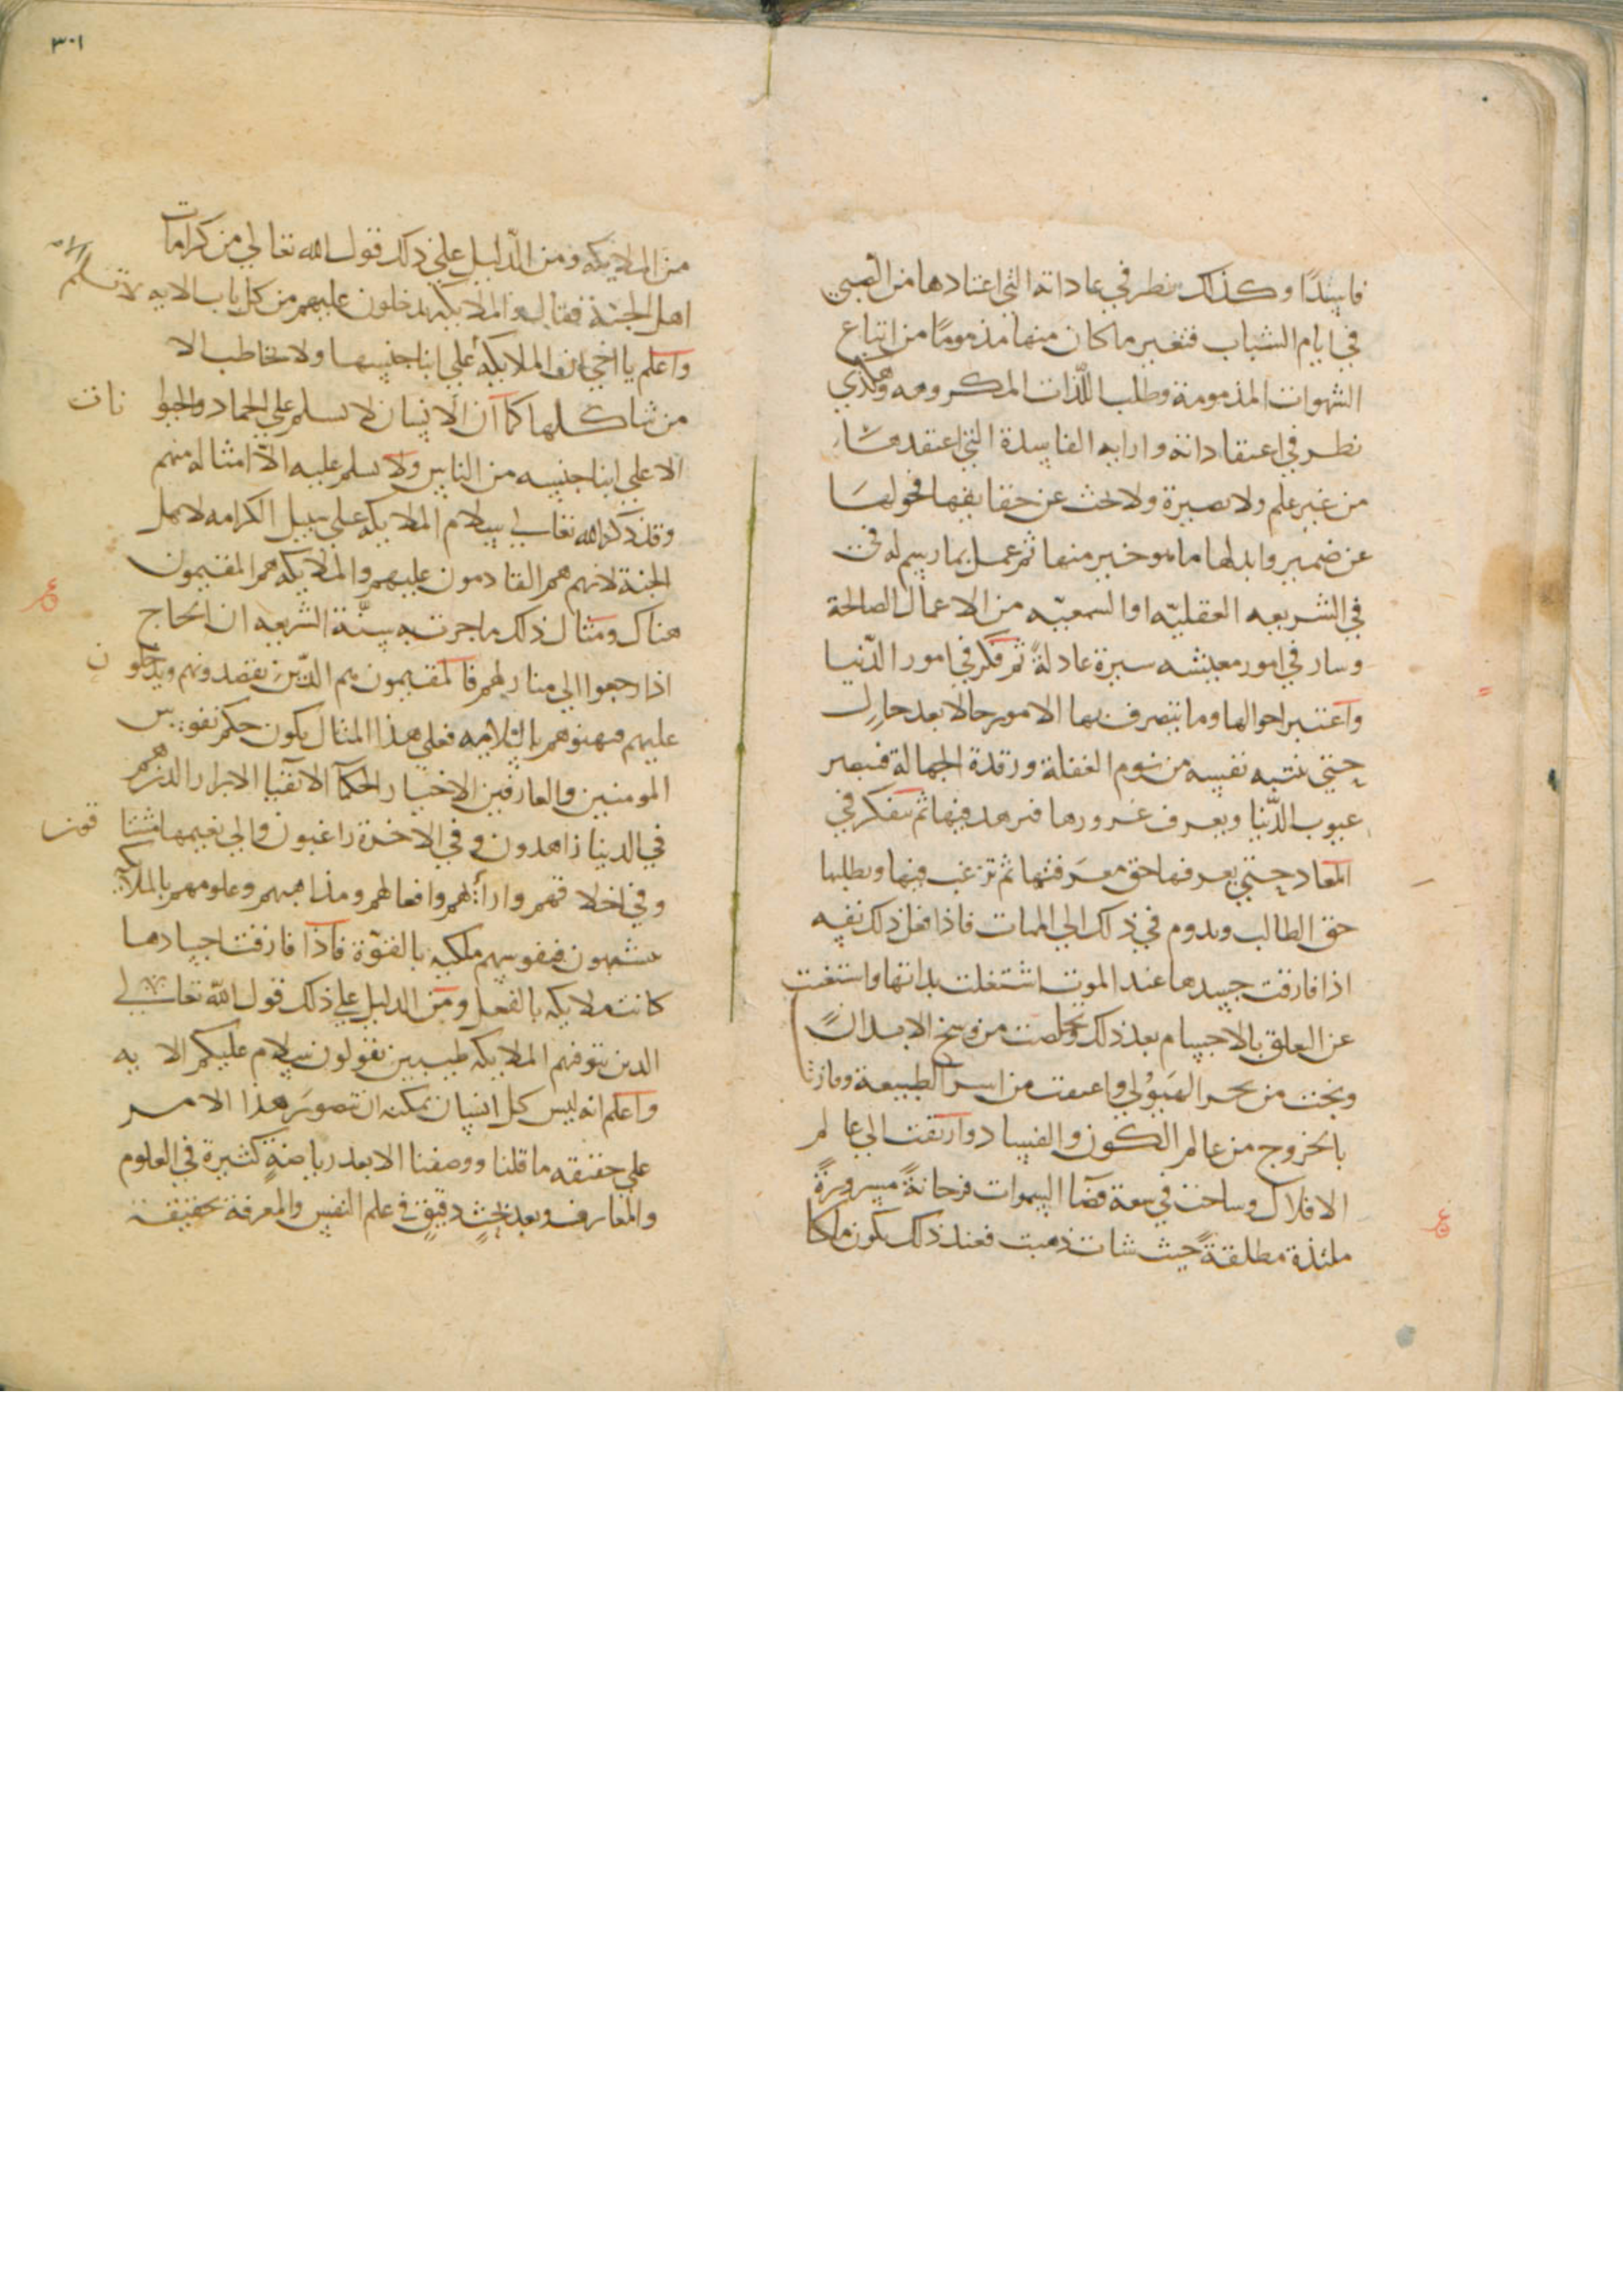 فاسدًا وكذلك ينظر في عاداته التي اعتادها من الصبي
في ايام الشباب فتغير ما كان منها مذمومًا من اتباع
الشهوات المذمومة وطلب اللّذات المكروهه وهكذي
نظر في اعتقاداته وارايه الفاسدة التي اعتقدها
من غير علم ولا بصيرة ولا بحث عن حقايقها فحولها
عن ضمير وابدلها ما هو خير منها ثم عمل بما رسم له في
في الشريعه العقليّه او السمعيّه من الاعمال الصالحة
وسار في امور معيشه سيرة عادلةً ثم فكر في امور الدّنيا
واعتبر احوالها وما يتصرف بها الامور حالا بعد حال
حتي تنتبه نفسه من نوم الغفلة ورقدة الجهالة فتبصر
عيوب الدّنيا ويعرف غرورها فيزهد فيها ثم يتفكر في
المعاد حتي يعرفها حق معرفتها ثم ترغب فيها ويطلبها
حق الطالب ويدوم في ذلك الي الممات فاذا فعل ذلك نفسه
اذا فارقت جسدها عند الموت اشتغلت بذاتها واستغنت
عن التعلق بالاجسام بعد ذلك وتخلصت من وسخ الابدان
ونجت من بحر الهيولي واعتقت من اسر الطبيعة وفازت
بالخروج من عالم الكون والفساد وارتقت الي عالم
الافلاك وساحت في سعة فضآ السموات فرحانةً مسرورةً
ملتذة مطلقةً حيث شات ذهبت فعند ذلك يكون ملكا
٣٠١
من الملايكه ومن الدّليل علي ذلك قول الله تعالي من كرامات
اهل الجنّة فقال والملايكه يدخلون عليهم من كل باب الايه
لا تسلم الا
واعلم يا اخي ان الملايكه علي ابنا جنسها ولا تخاطب الا
من شاكلها كما ان الانسان لا يسلم علي الجماد والحيوانات
الا علي ابنا جنسه من الناس ولا يسلم عليه الاّ امثاله منهم
وقد ذكر الله تعالي سلام الملايكه علي سبيل الكرامه لاهل
الجنة لانهم هم القادمون عليهم والملايكه هم المقيمون
هناك ومثال ذلك ما جرت به سنّة الشريعه ان الحاج
اذا رجعوا الي منازلهم فالمقيمون هم الذّين يقصدونهم ويدخلون
عليهم فيهنوهم بالسلامه فعلي هذا المثال يكون حكم نفوس
المومنين والعارفين الاخيار الحكمآ الاتقيا الابرار الذين هم
في الدنيا زاهدون وفي الاخرة راغبون والي نعيمها مشتاقون
وفي اخلاقهم وارآئهم وافعالهم ومذاهبهم وعلومهم بالملائكه
يتشبهون فنفوسهم ملكيه بالقوّة فاذا فارقت اجسادها
كانت ملايكه بالفعل ومن الدليل علي ذلك قول اللّه تعالي
الذين تتوفهم الملايكه طيبين يقولون سلام عليكم الايه
واعلم انه ليس كل انسان يمكنه ان يتصور هذا الامر
علي حقيقه ما قلنا ووصفنا الا بعد رياضةٍ كثيرة في العلوم
والمعارف وبعد بحثٍ دقيقٍ في علم النفس والمعرفة بحقيقة